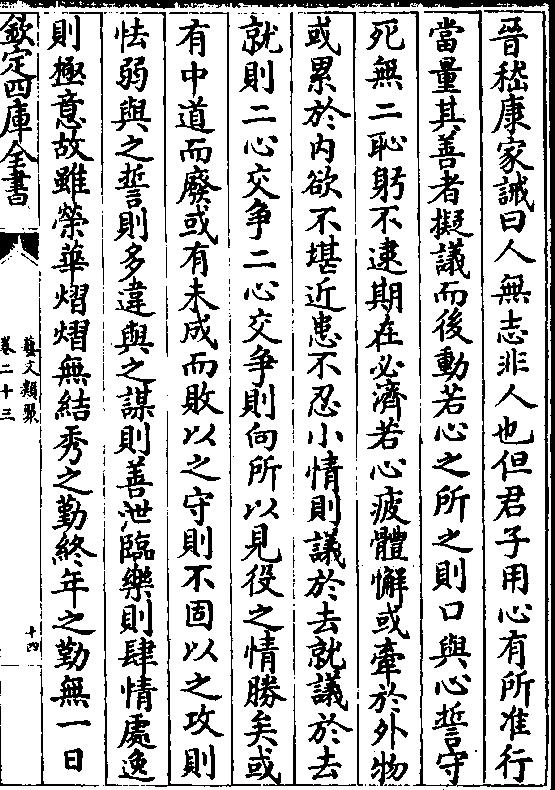 晉嵇康家誡曰人無志非人也但君子用心有所准行
當量其善者擬議而後動若心之所之則口與心誓守
死無二恥躬不逮期在必濟若心疲體懈或牽於外物
或累於內欲不堪近患不忍小情則議於去就議於去
就則二心交爭二心交爭則向所以見役之情勝矣或
有中道而廢或有未成而敗以之守則不固以之攻則
怯弱與之誓則多違與之謀則善泄臨樂則肆情處逸
則極意故雖榮華熠熠無結秀之勤終年之勤無一日
欽定四庫全書
藝文類聚
卷二十三
十四